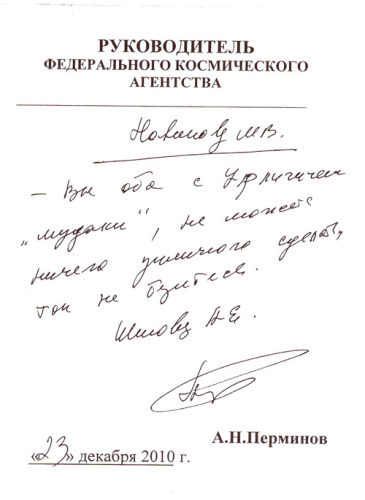 РУКОВОДИТЕЛЬ
ФЕДЕРАЛЬНОГО КОСМИЧЕСКОГО
АГЕНТСТВА
М.В.
– Вы оба с Урличичем
„мудаки", не можете
ничего приличного сделать,
так не
Шилову А.Е.
А.Н.Перминов
«23» декабря 2010 г.